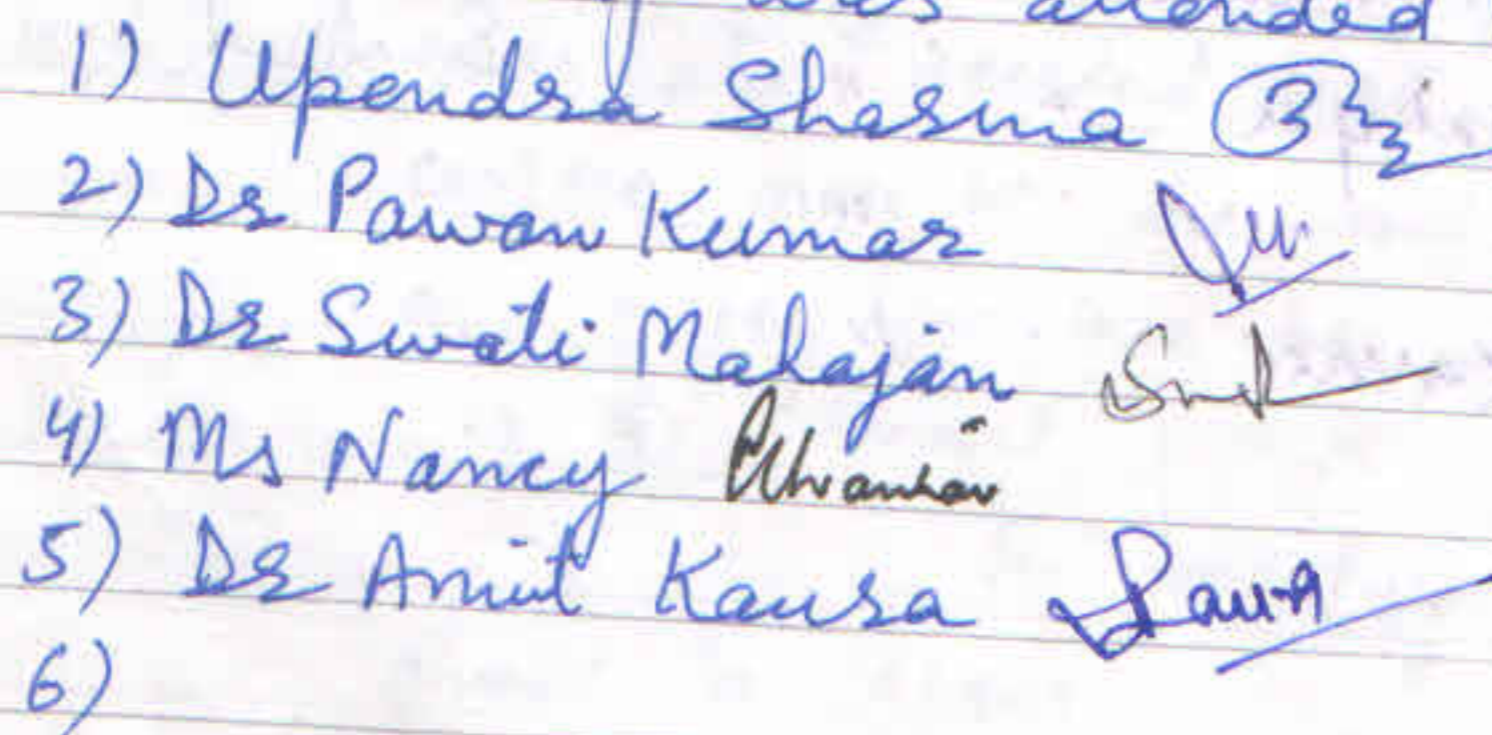 was attended
1) Upendra Sharma
2) Dr Pawan Kumar
3) Dr Swati Mahajan
4) Ms Nancy
5) Dr Amit Kaura
6)